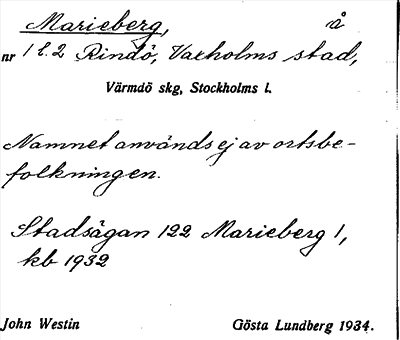 Marieberg, å
nr 1 l. 2 Rindö, Vaxholms stad,
Värmdö skg, Stockholms l.
Namnet används ej av ortsbe-
folkningen.
Stadsägan 122 Marieberg 1,
kb 1932
John Westin Gösta Lundberg 1934.